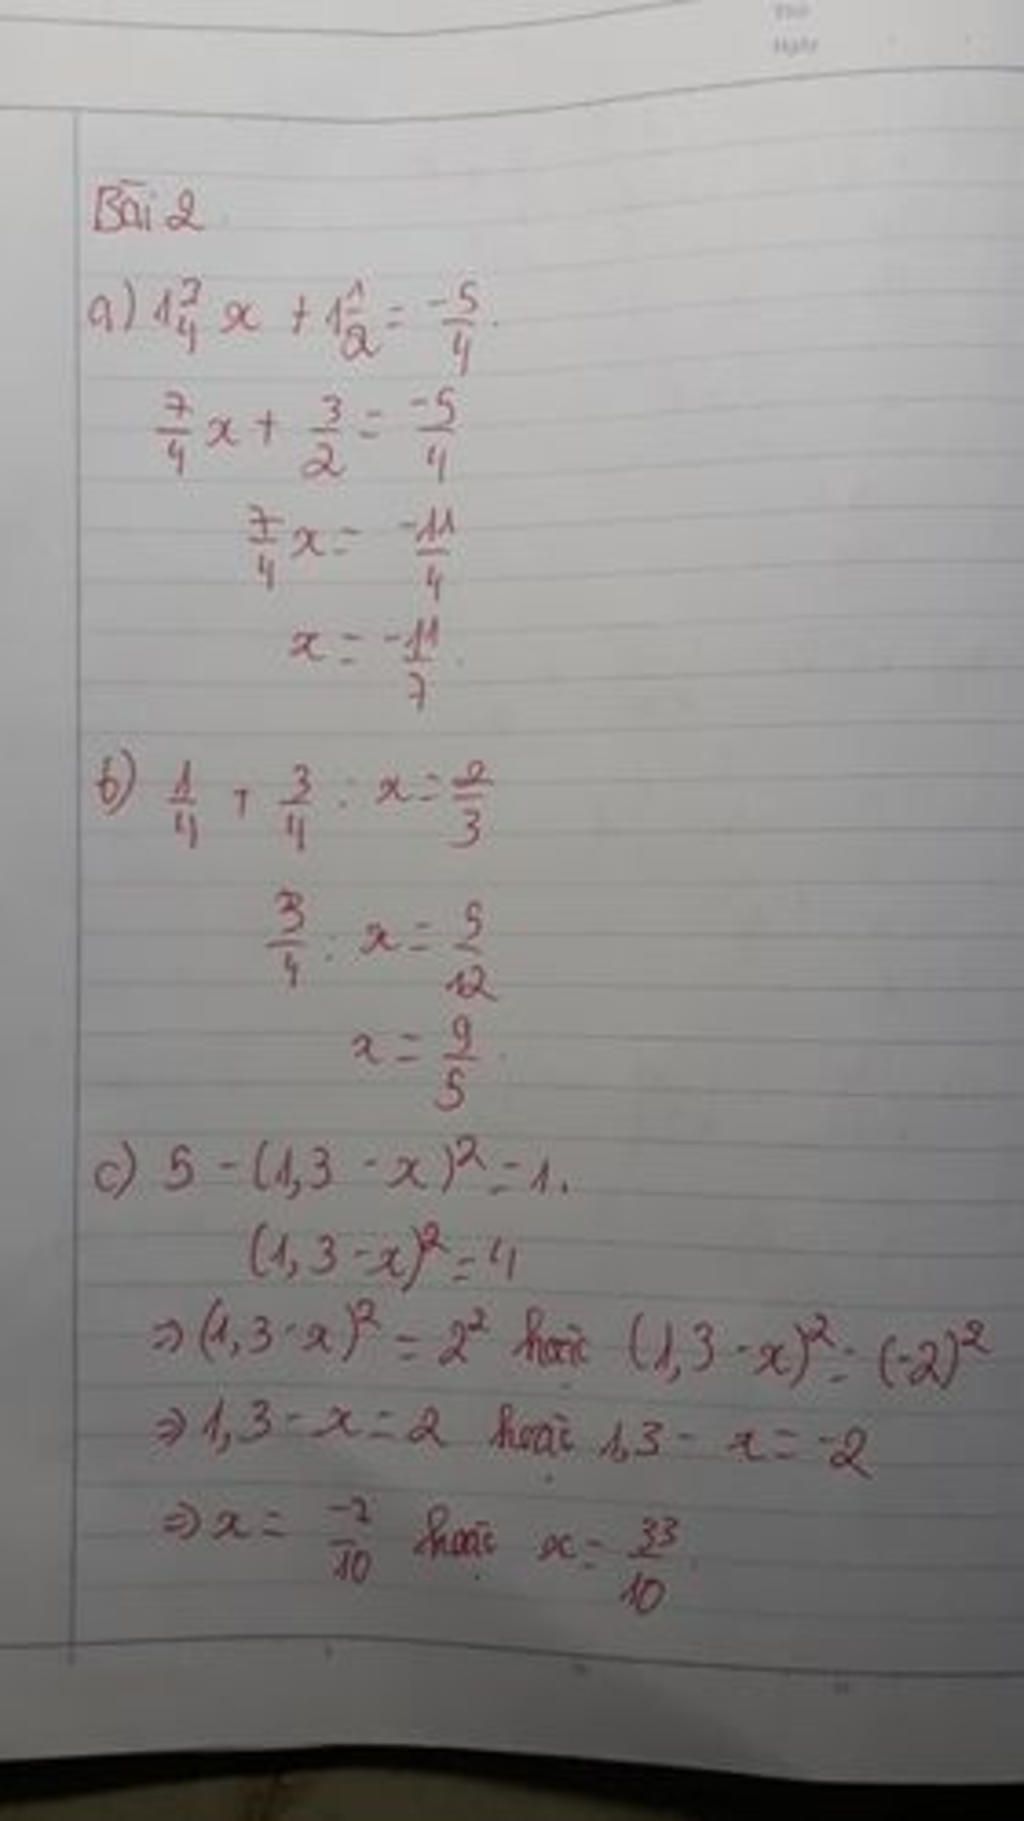 Thứ
Ngày
Bài 2.
a) 1 3/4 x + 1 1/2 = -5/4.
7/4 x + 3/2 = -5/4
7/4 x = -11/4
x = -11/7.
b) 1/4 + 3/4 : x = 2/3
3/4 : x = 5/12
x = 9/5.
c) 5 - (1,3 - x)² = 1.
(1,3 - x)² = 4
⇒ (1,3 - x)² = 2² hoặc (1,3 - x)² = (-2)²
⇒ 1,3 - x = 2 hoặc 1,3 - x = -2
⇒ x = -7/10 hoặc x = 33/10.